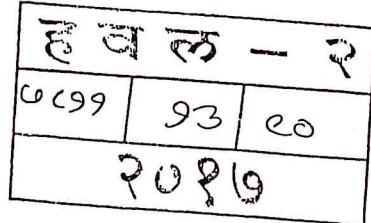 हवल - २
७८११ १३ ९०
२०१७